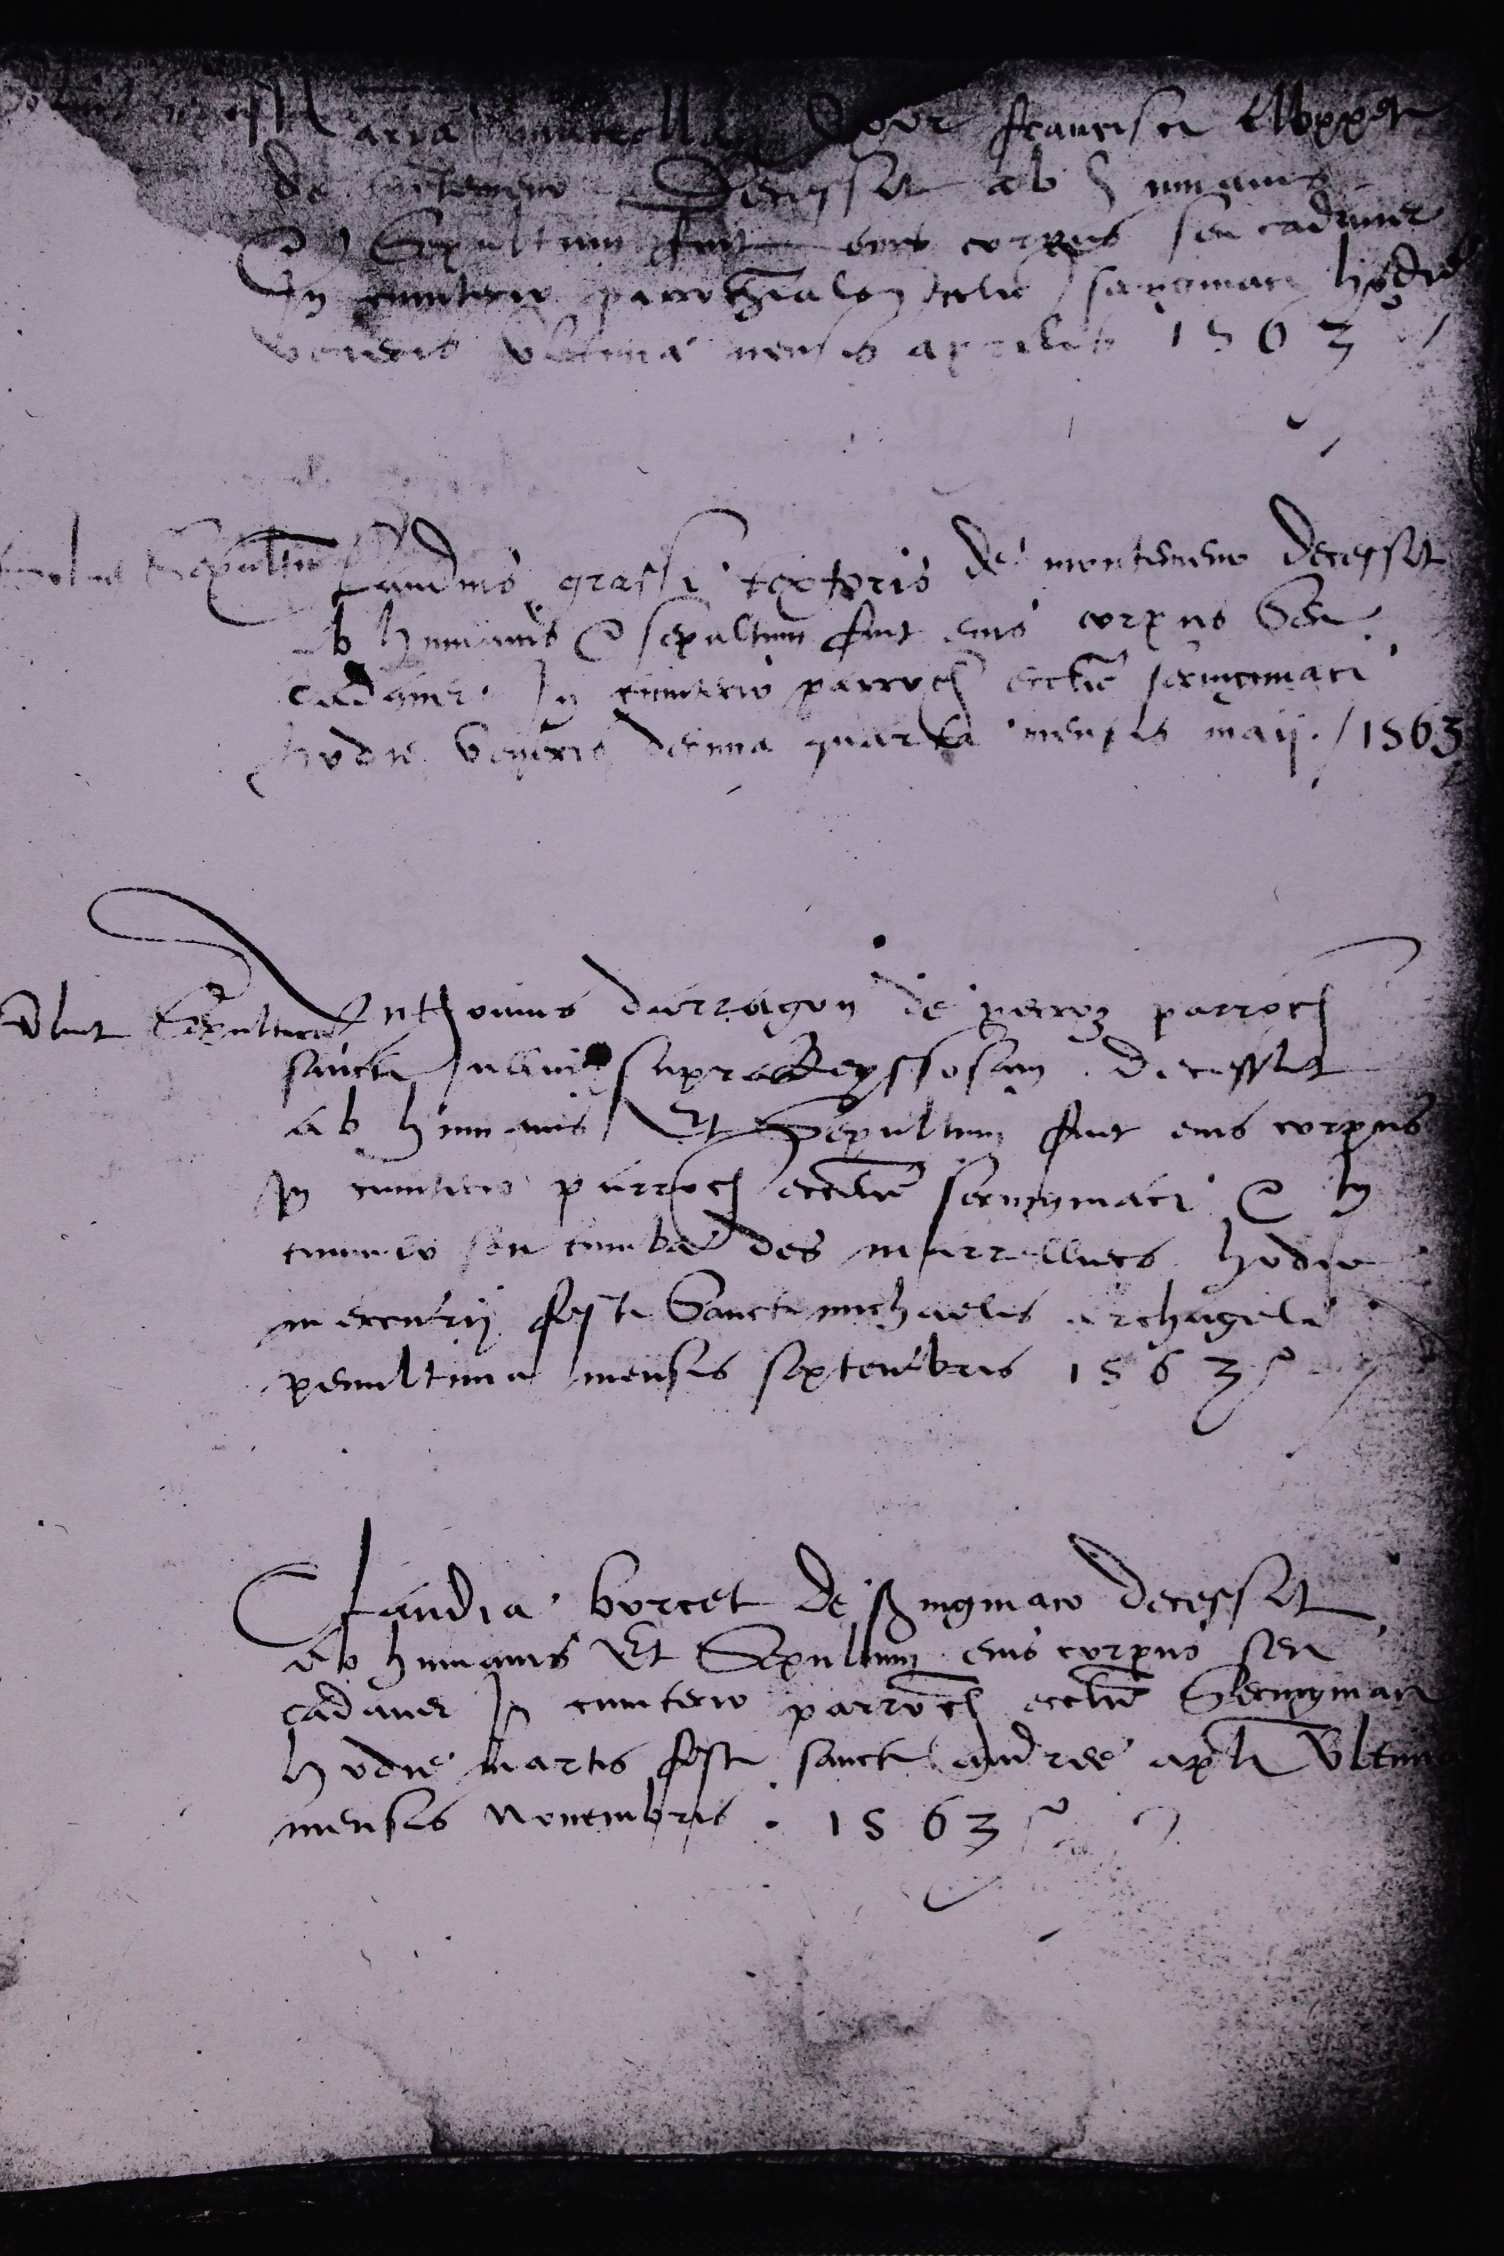 uxor francisci
de decessit ab humanis
Et Sepultum fuit eius corpus seu cadaver
In cimiterio parrochialis ecclie hodie
veneris ultima mensis aprilis 1563
Sepultura Claudius grassi textoris de montemeno decessit
ab humanis et sepultum fuit eius corpus seu
cadaver In cimiterio parroch ecclie sermomaci
hodie veneris decima quarta mensis maij 1563
Sepultura Anthonius darragon de perroz parroch
sancti Julliani supra Reyssosam decessit
ab humanis Et Sepultum fuit eius corpus
In cimiterio parroch ecclie et In
tumulo seu tumba des hodie
mercurij festi Sancti michaelis archageli
penultima mensis septembris 1563
Claudia borcet de decessit
ab humanis Et Sepultum eius corpus seu
cadaver In cimiterio parroch ecclie
hodie martis festi sancti andree apli Ultima
mensis Novembris . 1563